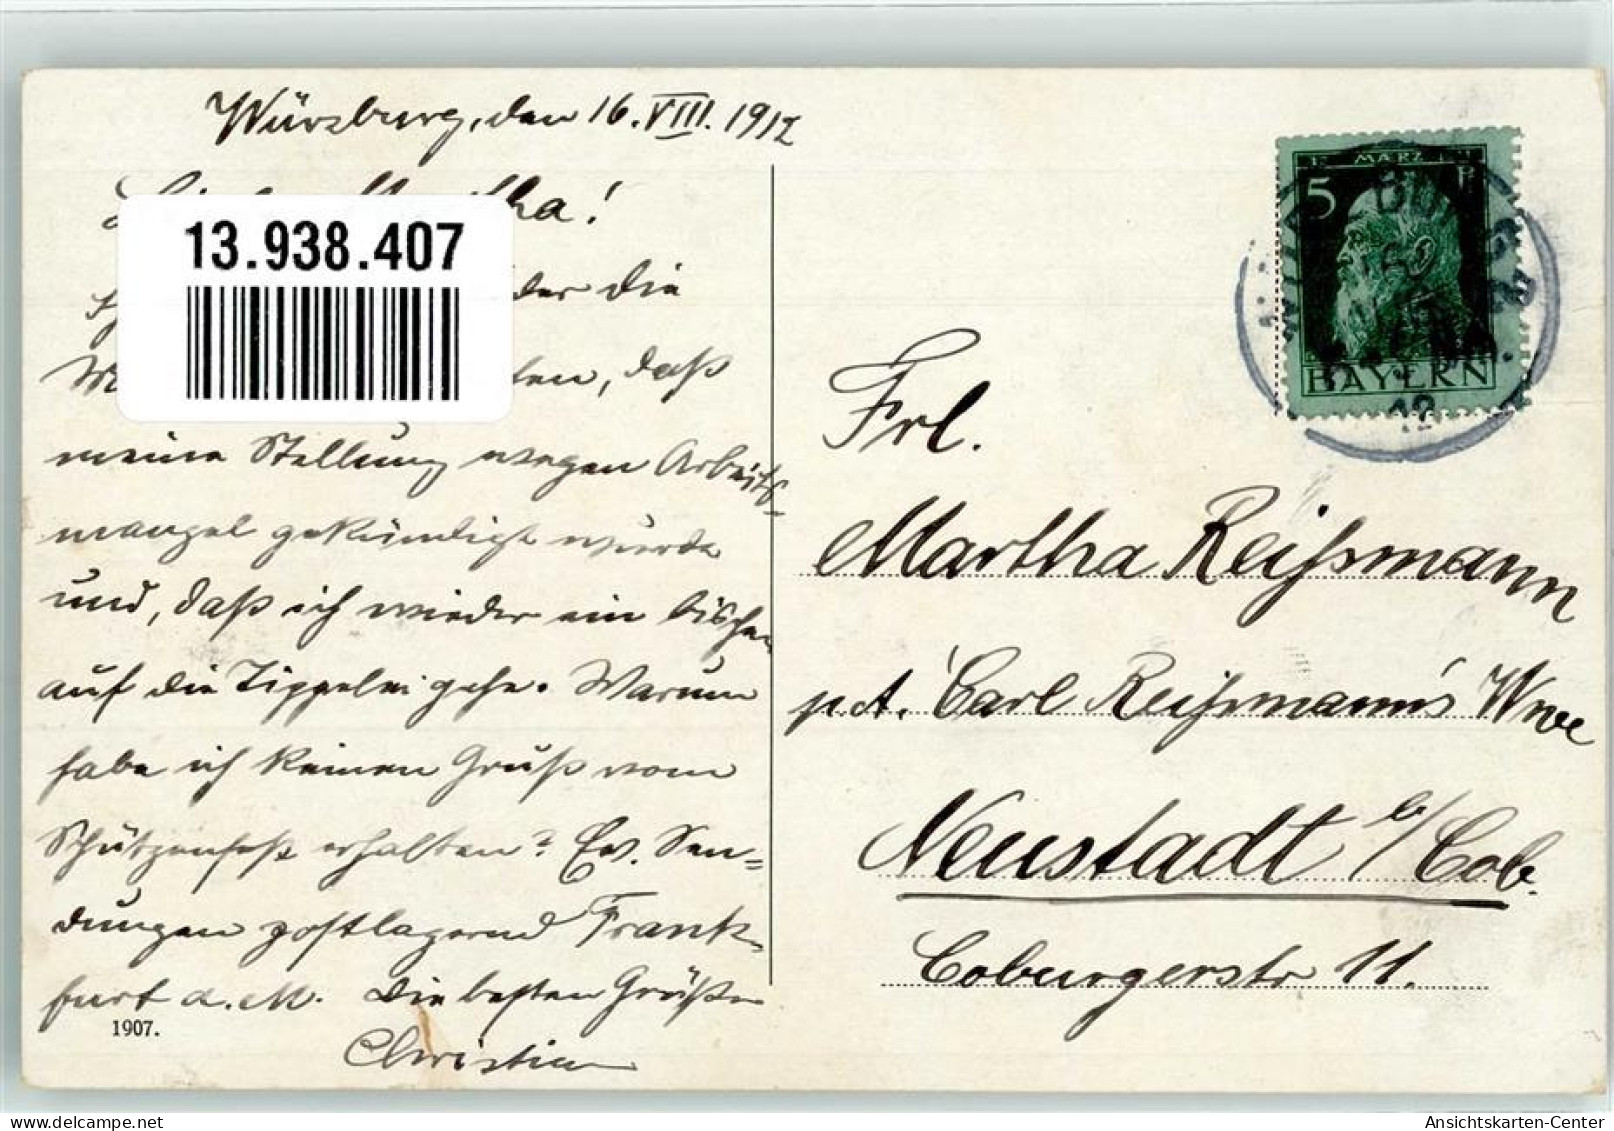 Würzburg, den 16. VIII. 1912
ha!
13.938.407
der die
ten, daß
meine Stellung wegen Arbeits-
mangel gekündigt wurde
und, daß ich wieder ein bischen
auf die Tippelei gehe. Warum
habe ich keinen Gruß vom
Schützenfest erhalten? Ev. Sen=
dungen postlagernd Frank-
furt a. M. Die besten Grüße
Christian
1907.
5
MÄRZ
BAYERN
12
Frl.
Martha Reißmann
Carl Reißmann's Wwe
Neustadt b/Cob.
Coburgerstr 11.
Ansichtskarten-Center